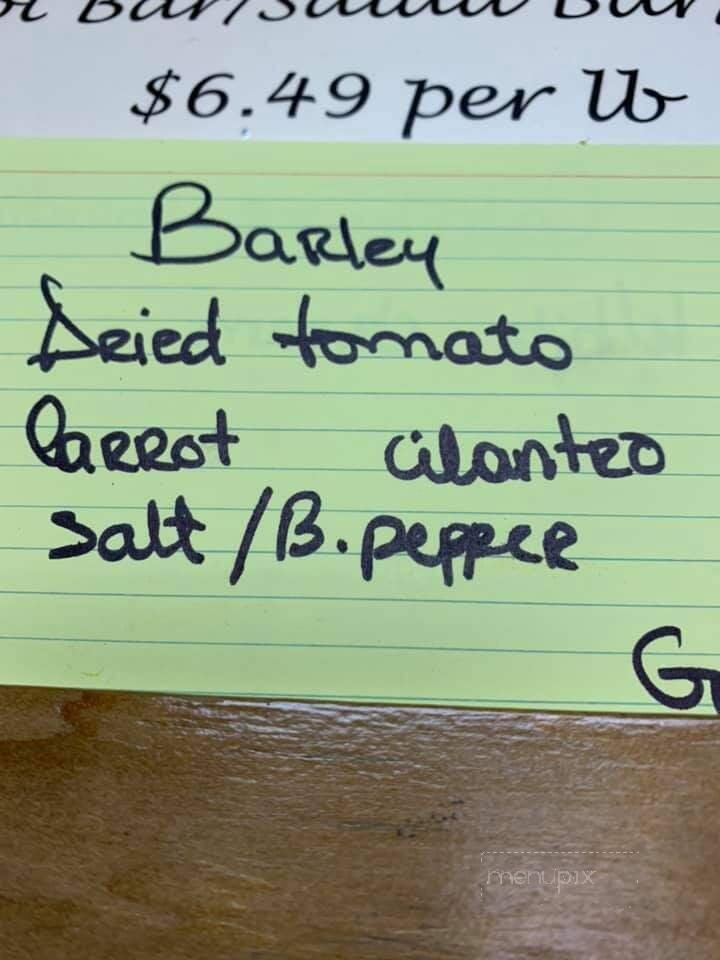 Bar/Salad Bar
$6.49 per lb
Barley
Dried tomato
Carrot cilantro
Salt/B.pepper
menupix